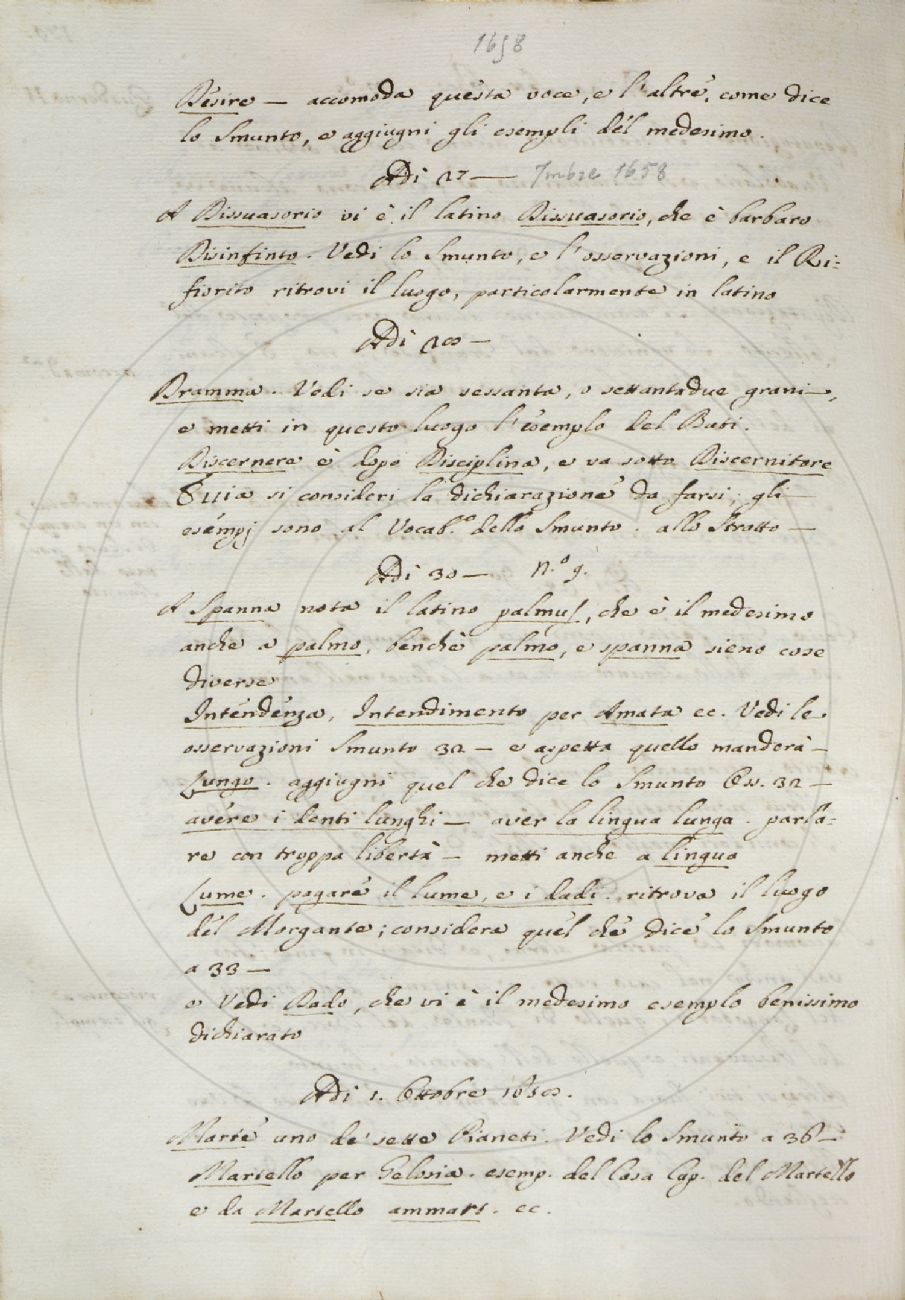 1658
Desire — accomoda questa voce, e l'altre, come dice
lo Smunto, e aggiugni gli esempli del medesimo.
Adi 27 — 7mbre 1658
A Dissuasorio vi è il latino Dissuasorio, che è barbaro
Disinfinto. Vedi lo Smunto, e l'osservazioni, e il Ri=
fiorito ritrovi il luogo, particolarmente in latino
Adi 28 —
Dramma. Vedi se sia sessanta, o settantadue grani —,
e metti in questo luogo l'esemplo del Buti.
Discernere è dopo Disciplina, e va sotto Discernitore
si consideri la dichiarazione da farsi; gli —
esempj sono al Vocab.o dello Smunto. allo Stratto —
Adi 30 — N.o 9.
A Spanna nota il latino palmus, che è il medesimo
anche a palmo, benchè palmo, e spanna sieno cose
diverse
Intendenza, Intendimento per Amata ec. Vedi le
osservazioni Smunto 32 — e aspetta quello manderà —
Lungo. aggiugni quel che dice lo Smunto Oss. 32 —
avere i denti lunghi — aver la lingua lunga. parla=
re con troppa libertà — metti anche a lingua
Lume. pagare il lume, e i dadi. ritrova il luogo
del Morgante; considera quel che dice lo Smunto
a 33 —
o Vedi Dado, che vi è il medesimo esemplo benissimo
dichiarato
Adi 1. Ottobre 1658.
Marte uno de' sette Pianeti. Vedi lo Smunto a 36 —
Martello per Gelosia. esemp. del Casa Cap. del Martello
e da Martello ammart. ec.